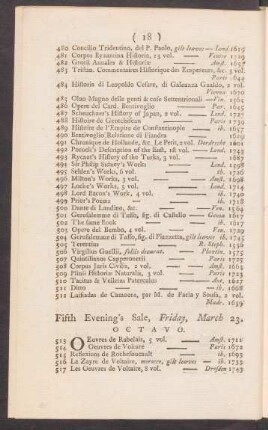 ( 18 )
480 Concilio Tridentino, del P. Paolo, gilt leaves — Lond. 1619
481 Corpus Byzantinæ Historiæ, 23 vol. — Venice 1729
482 Grotii Annales & Historiæ — Amst. 1657
483 Tristan, Commentaires Historique des Empereurs, &c. 3 vol.
Paris 1644
484 Historia di Leopoldo Cesare, di Galeazzo Gualdo, 2 vol.
Vienna 1670
485 Olao Magno delle genti & cose Settentrionali — Ven. 1565
486 Opere del Card. Bentivoglio — Par. 1645
487 Scheuchzer's History of Japan, 2 vol. — Lond. 1727
488 Histoire de Gentchizcan — Paris 1739
489 Histoire de l'Empire de Constantinople — ib. 1657
490 Bentivoglio Relatione di Fiandra — 1629
491 Chronique de Hollande, &c. Le Petit, 2 vol. Dordrecht 1601
492 Pocock's Description of the East, 1st vol. — Lond. 1743
493 Rycaut's History of the Turks, 3 vol. — 1687
494 Sir Philip Sidney's Works — Lond.
495 Selden's Works, 6 vol. — ib. 1726
496 Milton's Works, 3 vol. — Amst.
497 Locke's Works, 3 vol. — Lond. 1714
498 Lord Bacon's Works, 4 vol. — ib.
499 Prior's Poems — ib. 1718
500 Dante di Landino, &c. — Ven.
501 Gerusalemme di Tasso, fig. di Castello — Genoa 1617
502 The same Book — ib. 1617
503 Opere del Bembo, 4 vol. — Ven. 1729
504 Gerusalemme di Tasso, fig. di Piazzetta, gilt leaves ib. 1745
505 Terentius — R. Steph. 1536
506 Virgilius Guellii, foliis deaurat. — Plantin. 1575
507 Quintilianus Capperonerii — Paris 1725
508 Corpus Juris Civilis, 2 vol. — Amst. 1663
509 Plinii Historia Naturalis, 3 vol. — Paris 1723
510 Tacitus & Velleius Paterculus — Ant. 1627
511 Ditto — ib. 1668
512 Lusiadas de Camoens, por M. de Faria y Sousa, 2 vol.
Madr. 1639
Fifth Evening's Sale, Friday, March 23.
OCTAVO.
513 Oeuvres de Rabelais, 5 vol. — Amst. 1711
514 Oeuvres de Voiture — Paris 1672
515 Reflexions de Rochefoucault — ib. 1693
516 La Zayre de Voltaire, morocco, gilt leaves — ib. 1733
517 Les Oeuvres de Voltaire, 8 vol. — Dresden 1749